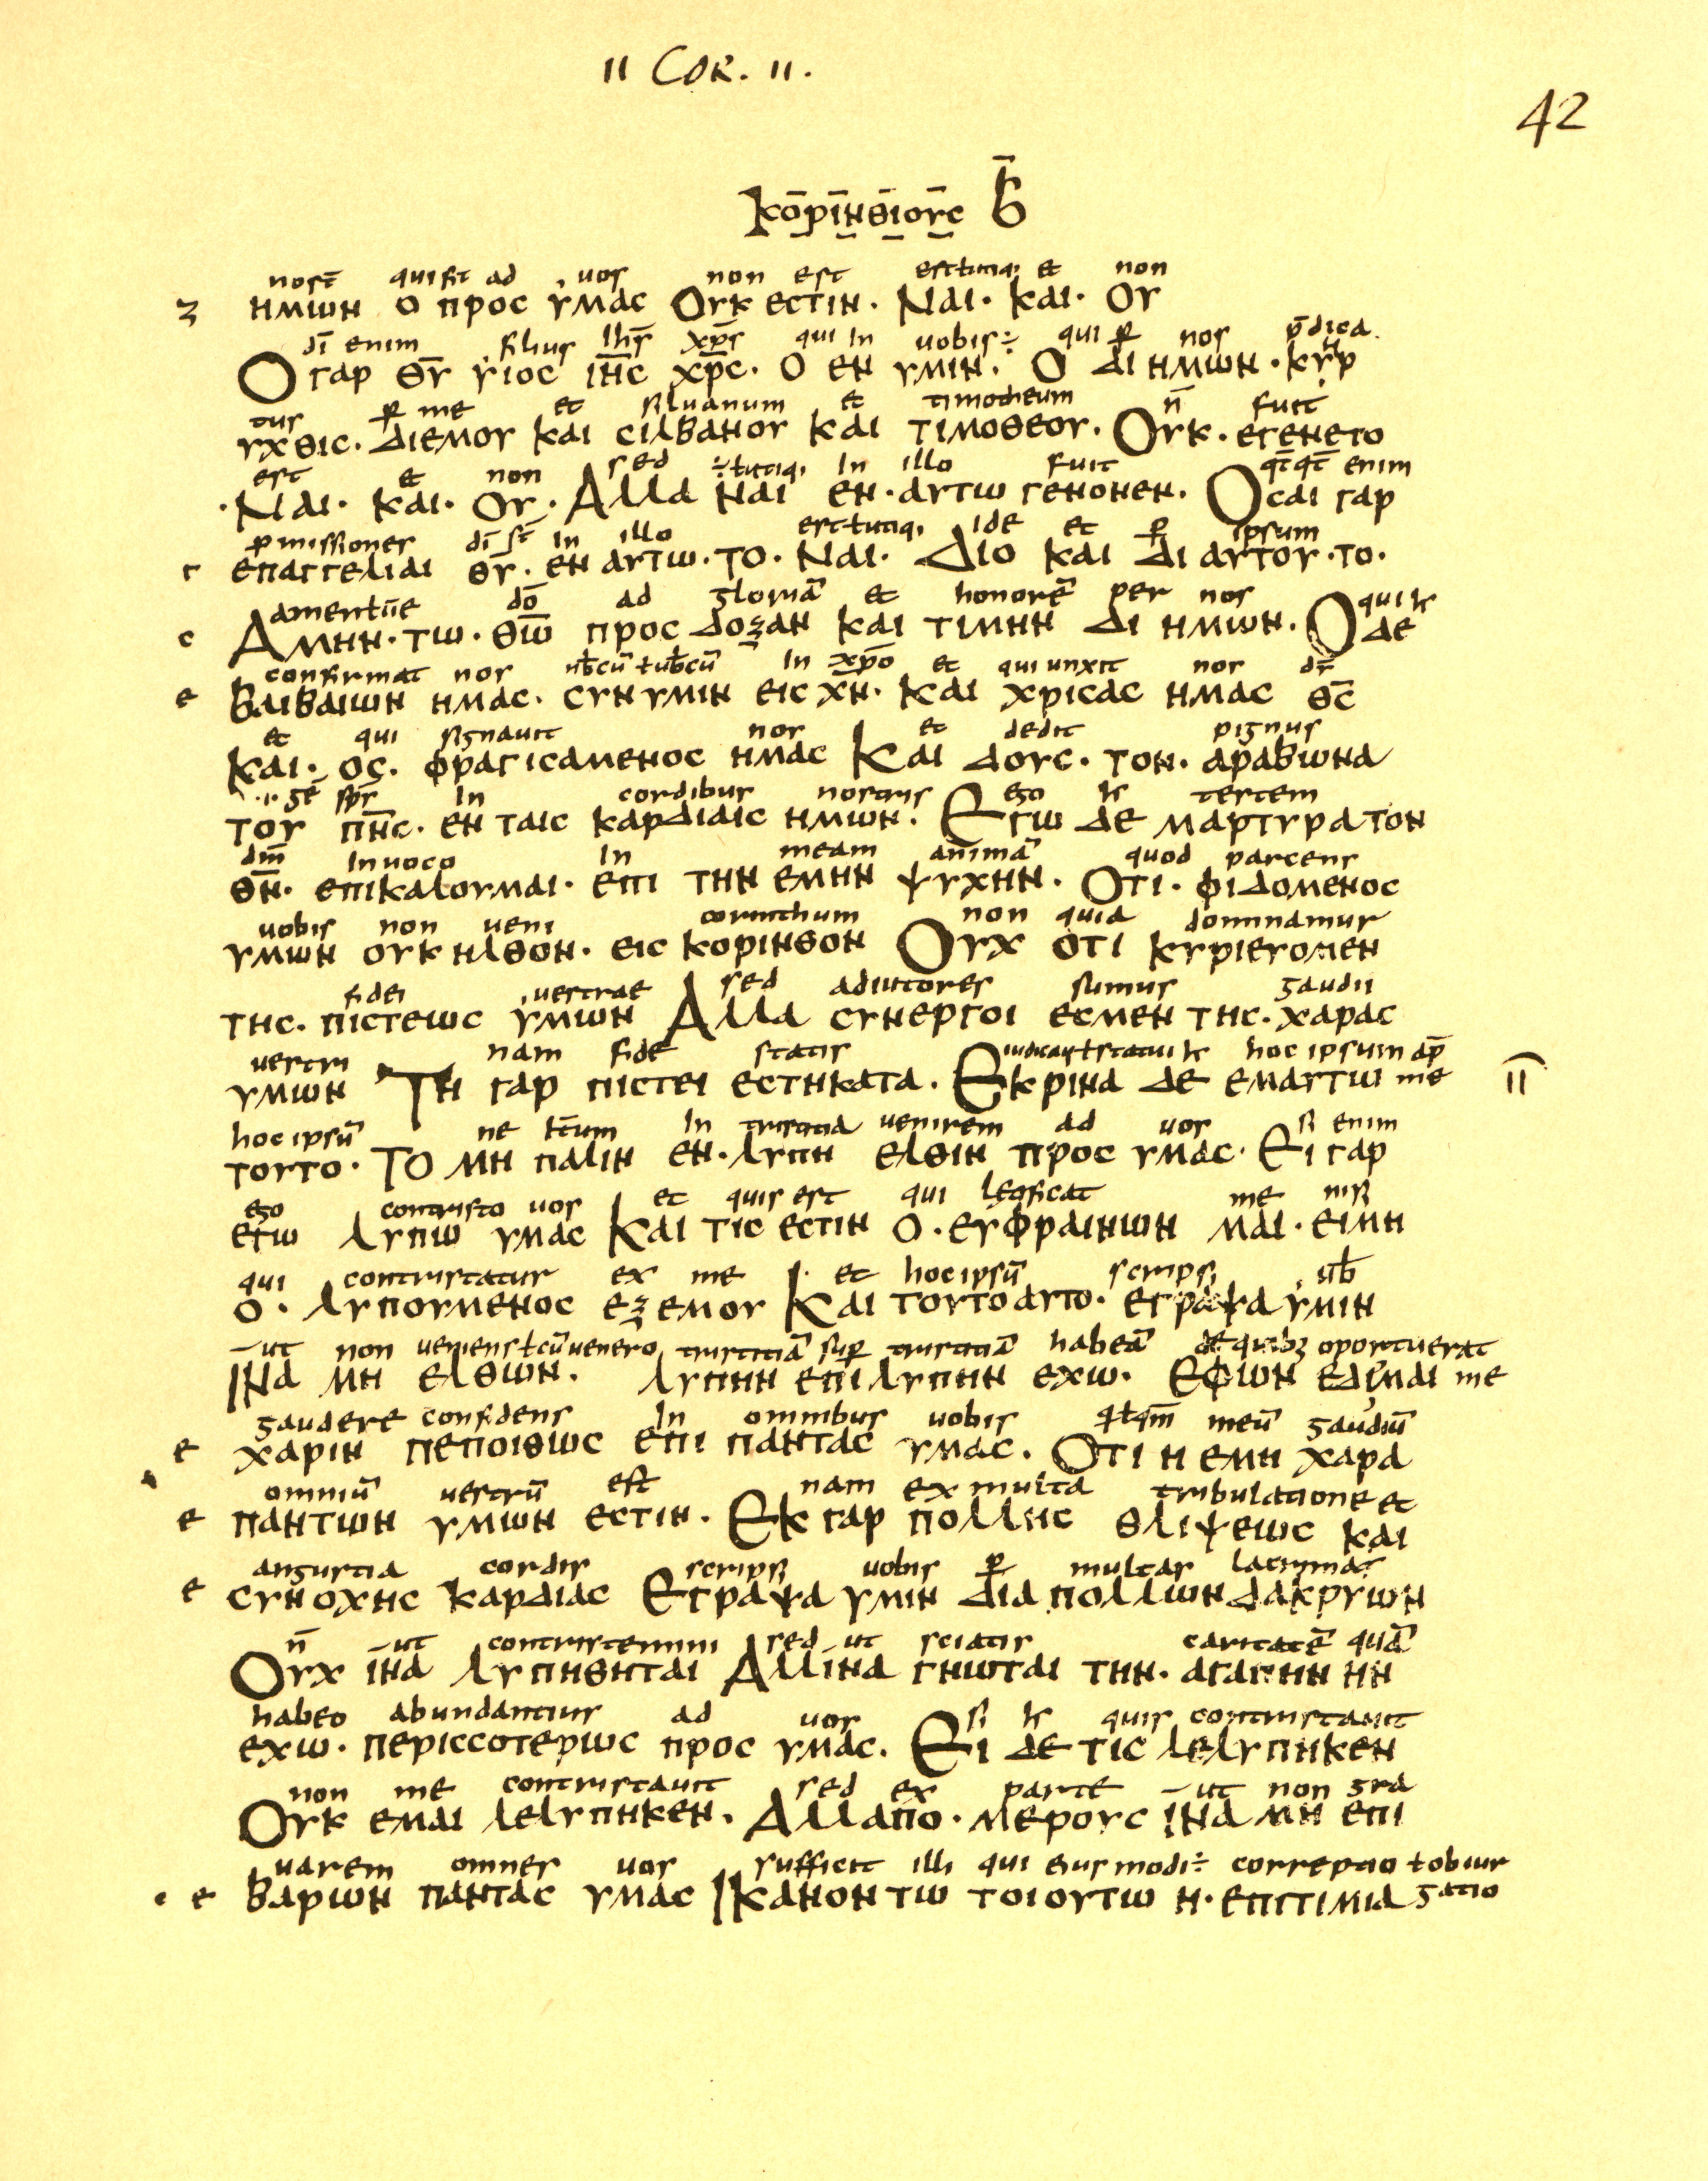 II COR. II.
42
κορινθιους β
nost̄ qui fit ad uos non est est utiq; et non
ημων ο προς υμας Ουκ εστιν. Ναι. και. Ου
dī enim filius ih̄s xp̄s qui in uobis÷ qui ꝑ nos p̄dica
Ο γαρ θ̄υ υιος ιη̄ς χρ̄ς. Ο εν υμιν. Ο δι ημων. κηρ
tus ꝑ me et siluanum et timotheum n̄ fuit
υχθις. Διεμου και σιλβανου και τιμοθεου. Ουκ. εγενετο
est et non sed ÷ ł utiq; in illo fuit qt̄qt̄ enim
.Ναι. και. ου. Αλλα ναι εν. αυτω γενονεν. Οσαι γαρ
ꝓmissiones dī st̄ in illo est ł utiq; ide et ꝑ ipsum
επαγγελιαι θ̄υ. εν αυτω. το. Ναι. Διο και δι αυτου. το.
amen dō ad gloriā et honorē per nos qui
Αμην. τω. θ̄ω προς δοξαν και τιμην δι ημων. Ο δε
confirmat nos in xp̄o et qui unxit nos d̄s
βαιβαιων ημας. συν υμιν εις χ̄ν. και χρισας ημας θ̄ς
et qui signauit nos et dedit pignus
και. ος. φραγισαμενος ημας Και δους. τον. αραβωνα
sp̄s in cordibus nostris ego testem
του πη̄ς. εν ταις καρδιαις ημων. Εγω δε μαρτυρα τον
dm̄ inuoco in meam animā quod parcens
θ̄ν. επικαλουμαι. επι την εμην ψυχην. Οτι. φιδομενος
uobis non ueni corinthum non quia dominamur
υμων ουκ ηλθον. εις κορινθον Ουχ οτι κυριευομεν
fidei uestrae sed adiutores sumus gaudii
της. πιστεως υμων Αλλα συνεργοι εσμεν της. χαρας
uestri nam fide statis iudicaui ł statui hoc ipsum ap̄
υμων Τη γαρ πιστει εστηκατα. Εκρινα δε εμαυτω me II
hoc ipsū ne ił̄um in tristitia uenirem ad uos si enim
τουτο. Το μη παλιν εν. λυπη ελθιν προς υμας. Ει γαρ
ego contristo uos et quis est qui leqficat me nisi
εγω λυπω υμας Και τις εστιν ο. ευφραινων μαι. ειμη
qui contristatur ex me et hoc ipsū scripsi uƀ
ο. λυπουμενος εξεμου Και τουτο αυτο. εγραψα υμιν
ut non ueniens ł cū uenero tristitiā suꝑ tristitiā habeā de quibꝫ oportuerat
Ινα μη ελθων. λυπην επι λυπην εχω. Εφων εδιμαι me
gaudere confidens in omnibus uobis meū gaudiū
χαριν πεποιθως επι παντας υμας. Οτι η εμη χαρα
omniū uestrū est nam ex multa tribulatione et
παντων υμων εστιν. Εκ γαρ πολλης θλιψεως και
angustia cordis scripsi uobis ꝑ multas lacrimas
συνοχης καρδιας Εγραψα υμιν δια πολλων δακρυων
n̄ ut contristemini sed ut sciatis caritatē quā
Ουχ ινα λυπηθηται Αλλινα γνωται την. αγαπην ην
habeo abundantius ad uos si quis contristauit
εχω. περισσοτερως προς υμας. Ει δε τις λελυπηκεν
non me contristauit sed ex parte ut non gra
Ουκ εμαι λελυπηκεν. Αλλαπο. μερους ινα μη επι
uarem omnes uos sufficit illi qui eiusmodi÷ correptio ł obiur
βαρων παντας υμας Ικανον τω τοιουτω η. επιτιμια gatio